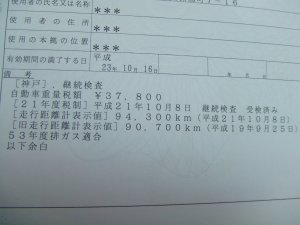 使用者の氏名又は名称
***
使用者の住所
***
使用の本拠の位置
***
有効期間の満了する日
平成
23年10月16日
備考
[神戸],継続検査
自動車重量税額 ¥37,800
[21年度税制]平成21年10月8日 継続検査 受検済み
[走行距離計表示値] 94,300km(平成21年10月8日)
[旧走行距離計表示値] 90,700km(平成19年9月25日)
53年度排ガス適合
以下余白